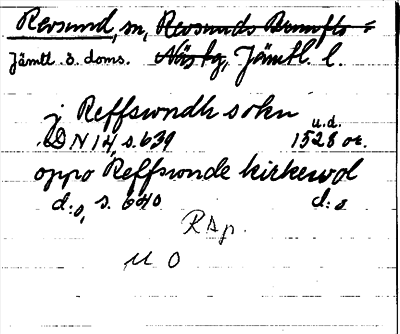 Revsund, sn, Revsunds Brunflo =
Jämtl. ö. doms. Näs tg, Jämtl. l.
j Reffswndh sokn
DN 14, s. 639 u.d. 1528 or.
oppo Reffswnde kirkewol
d:o, s. 640 d:o
Rsp.
u o